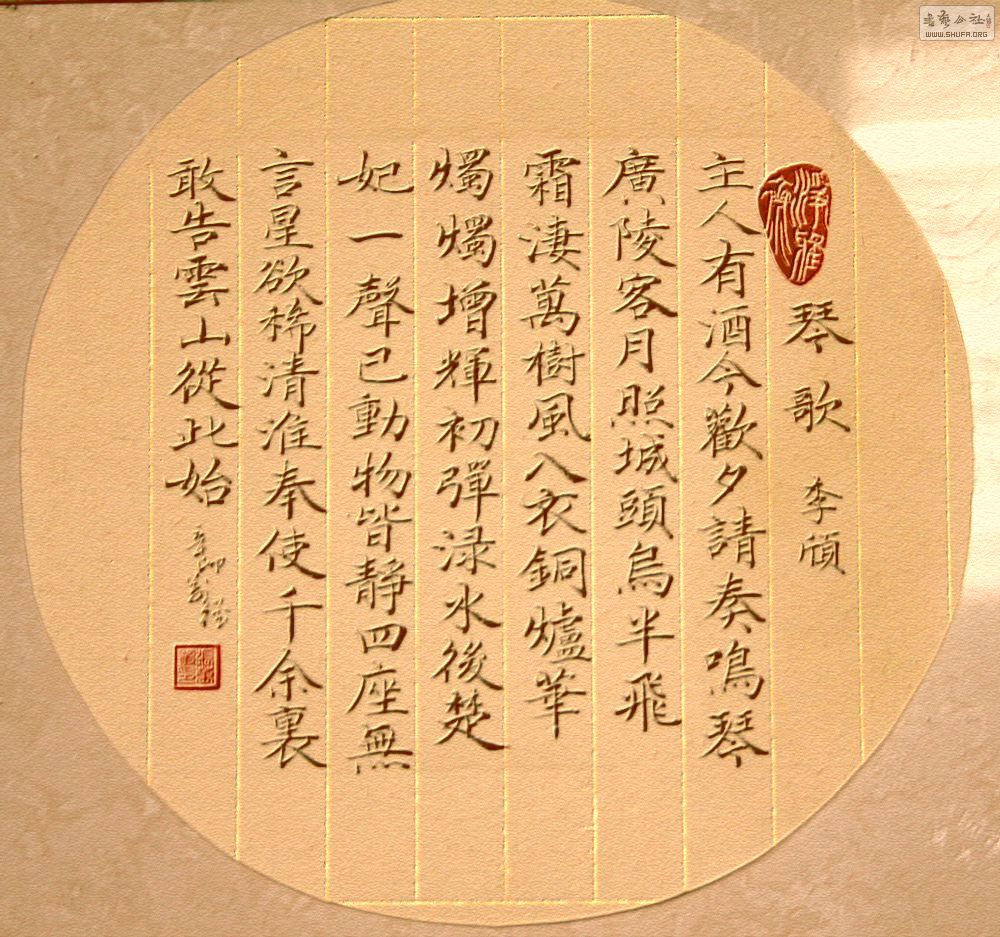 琴歌 李頎
主人有酒今歡夕請奏鳴琴
廣陵客月照城頭烏半飛
霜淒萬樹風入衣銅爐華
燭燭增輝初彈渌水後楚
妃一聲已動物皆靜四座無
言星欲稀清淮奉使千余裏
敢告雲山從此始
辛卯
書藝公社
WWW.SHUFA.ORG